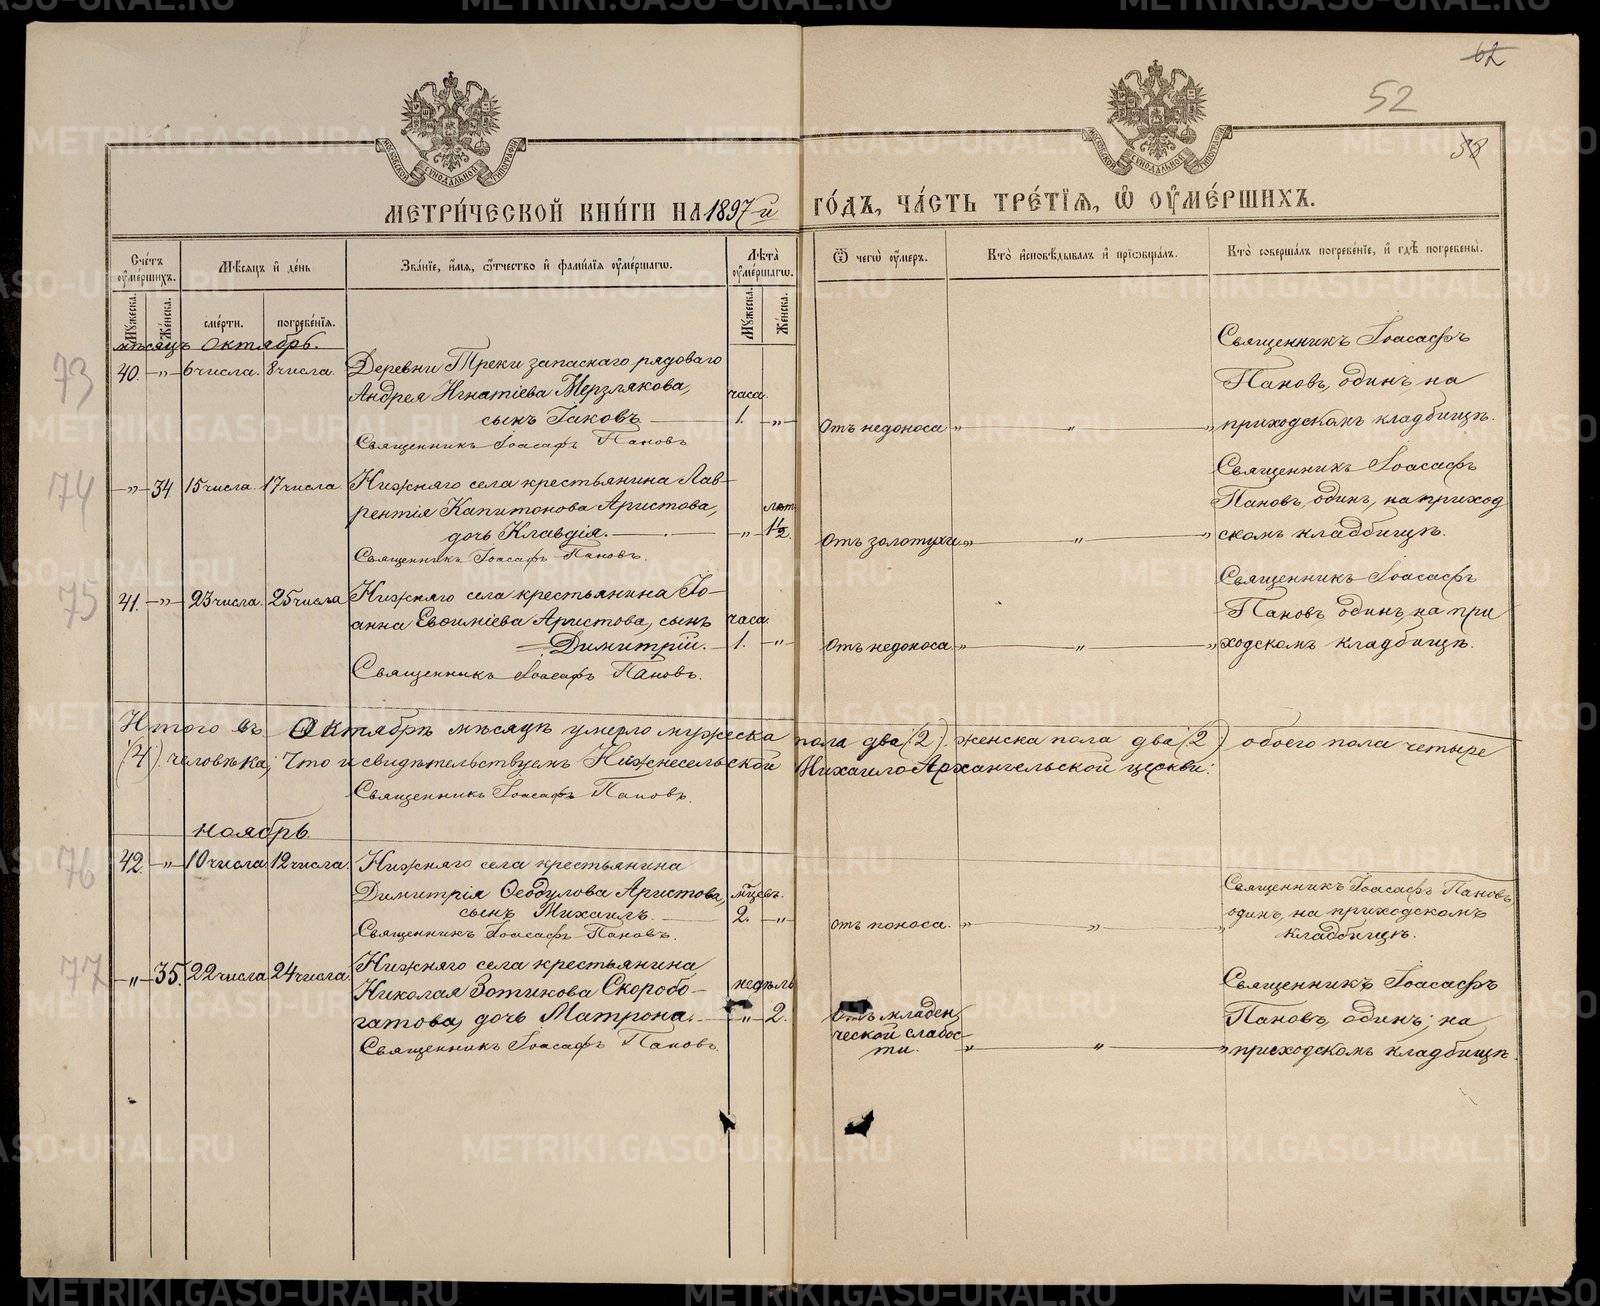 62
52
38
МОСКОВСКОЙ СѴНОДАЛЬНОЙ ТИПОГРАФІИ
МОСКОВСКОЙ СѴНОДАЛЬНОЙ ТИПОГРАФІИ
МЕТРИ́ЧЕСКОЙ КНИ́ГИ НА 1897-й ГО́ДЪ, ЧА́СТЬ ТРЕ́ТЇѦ, Ѡ҆ ОУ҆МЕ́РШИХЪ.
Сче́тъ оу҆ме́ршихъ.
Мѣ́сѧцъ и҆ де́нь
Зва́нїе, и҆́мѧ, ѻ҆́тчество и҆ фами́лїѧ оу҆ме́ршагѡ.
Лѣ́та оу҆ме́ршагѡ.
Ѿ чегѡ̀ оу҆́меръ.
Кто̀ и҆сповѣ́дывалъ и҆ прїѡбща́лъ.
Кто̀ соверша́лъ погребе́нїе, и҆ гдѣ̀ погребены̀.
Мꙋ́жеска.
Же́нска.
сме́рти.
погребе́нїѧ.
Мꙋ́жеска.
Же́нска.
мѣсяцъ Октябрь.
73
40. „ 6 числа. 8 числа.
Деревни Треки запаснаго рядоваго
Андрея Игнатіева Мерзлякова,
сынъ Іаковъ
Священникъ Іоасафъ Пановъ
часа.
1. „
Отъ недоноса „ „ „
Священникъ Іоасафъ
Пановъ, одинъ, на
приходскомъ кладбищѣ.
74
„ 34 15 числа. 17 числа.
Нижняго села крестьянина Лав-
рентія Капитонова Аристова,
дочь Клавдія.
Священникъ Іоасафъ Пановъ.
лѣт.
„ 1½.
Отъ золотухи „ „ „
Священникъ Іоасафъ
Пановъ, одинъ, на приход
скомъ кладбищѣ.
75
41. „ 23 числа. 25 числа
Нижняго села крестьянина Іо-
анна Евѳиміева Аристова, сынъ
Димитрій.
Священникъ Іоасафъ Пановъ.
часа.
1. „
Отъ недоноса „ „ „
Священникъ Іоасафъ
Пановъ одинъ, на при
ходскомъ кладбищѣ.
Итого въ Октябрѣ мѣсяцѣ умерло мужеска пола два (2) женска пола два (2) обоего пола четыре
(4) человѣка, Что и свидѣтельствуемъ Нижнесельской Михаило Архангельской церкви:
Священникъ Іоасафъ Пановъ.
Ноябрь
76
42. „ 10 числа 12 числа.
Нижняго села крестьянина
Димитрія Ѳеодулова Аристова,
сынъ Михаилъ.
Священникъ Іоасафъ Пановъ.
мцевъ.
2. „
Отъ поноса. „ „ „
Священникъ Іоасафъ Пановъ,
одинъ, на приходскомъ
кладбищѣ.
77
„ 35. 22 числа 24 числа.
Нижняго села крестьянина
Николая Зотикова Скоробо-
гатова, дочь Матрона.
Священникъ Іоасафъ Пановъ.
недѣль
„ 2.
Отъ младен
ческой слабос-
ти. „ „ „
Священникъ Іоасафъ
Пановъ, одинъ, на
приходскомъ кладбищѣ.
METRIKI.GASO-URAL.RU